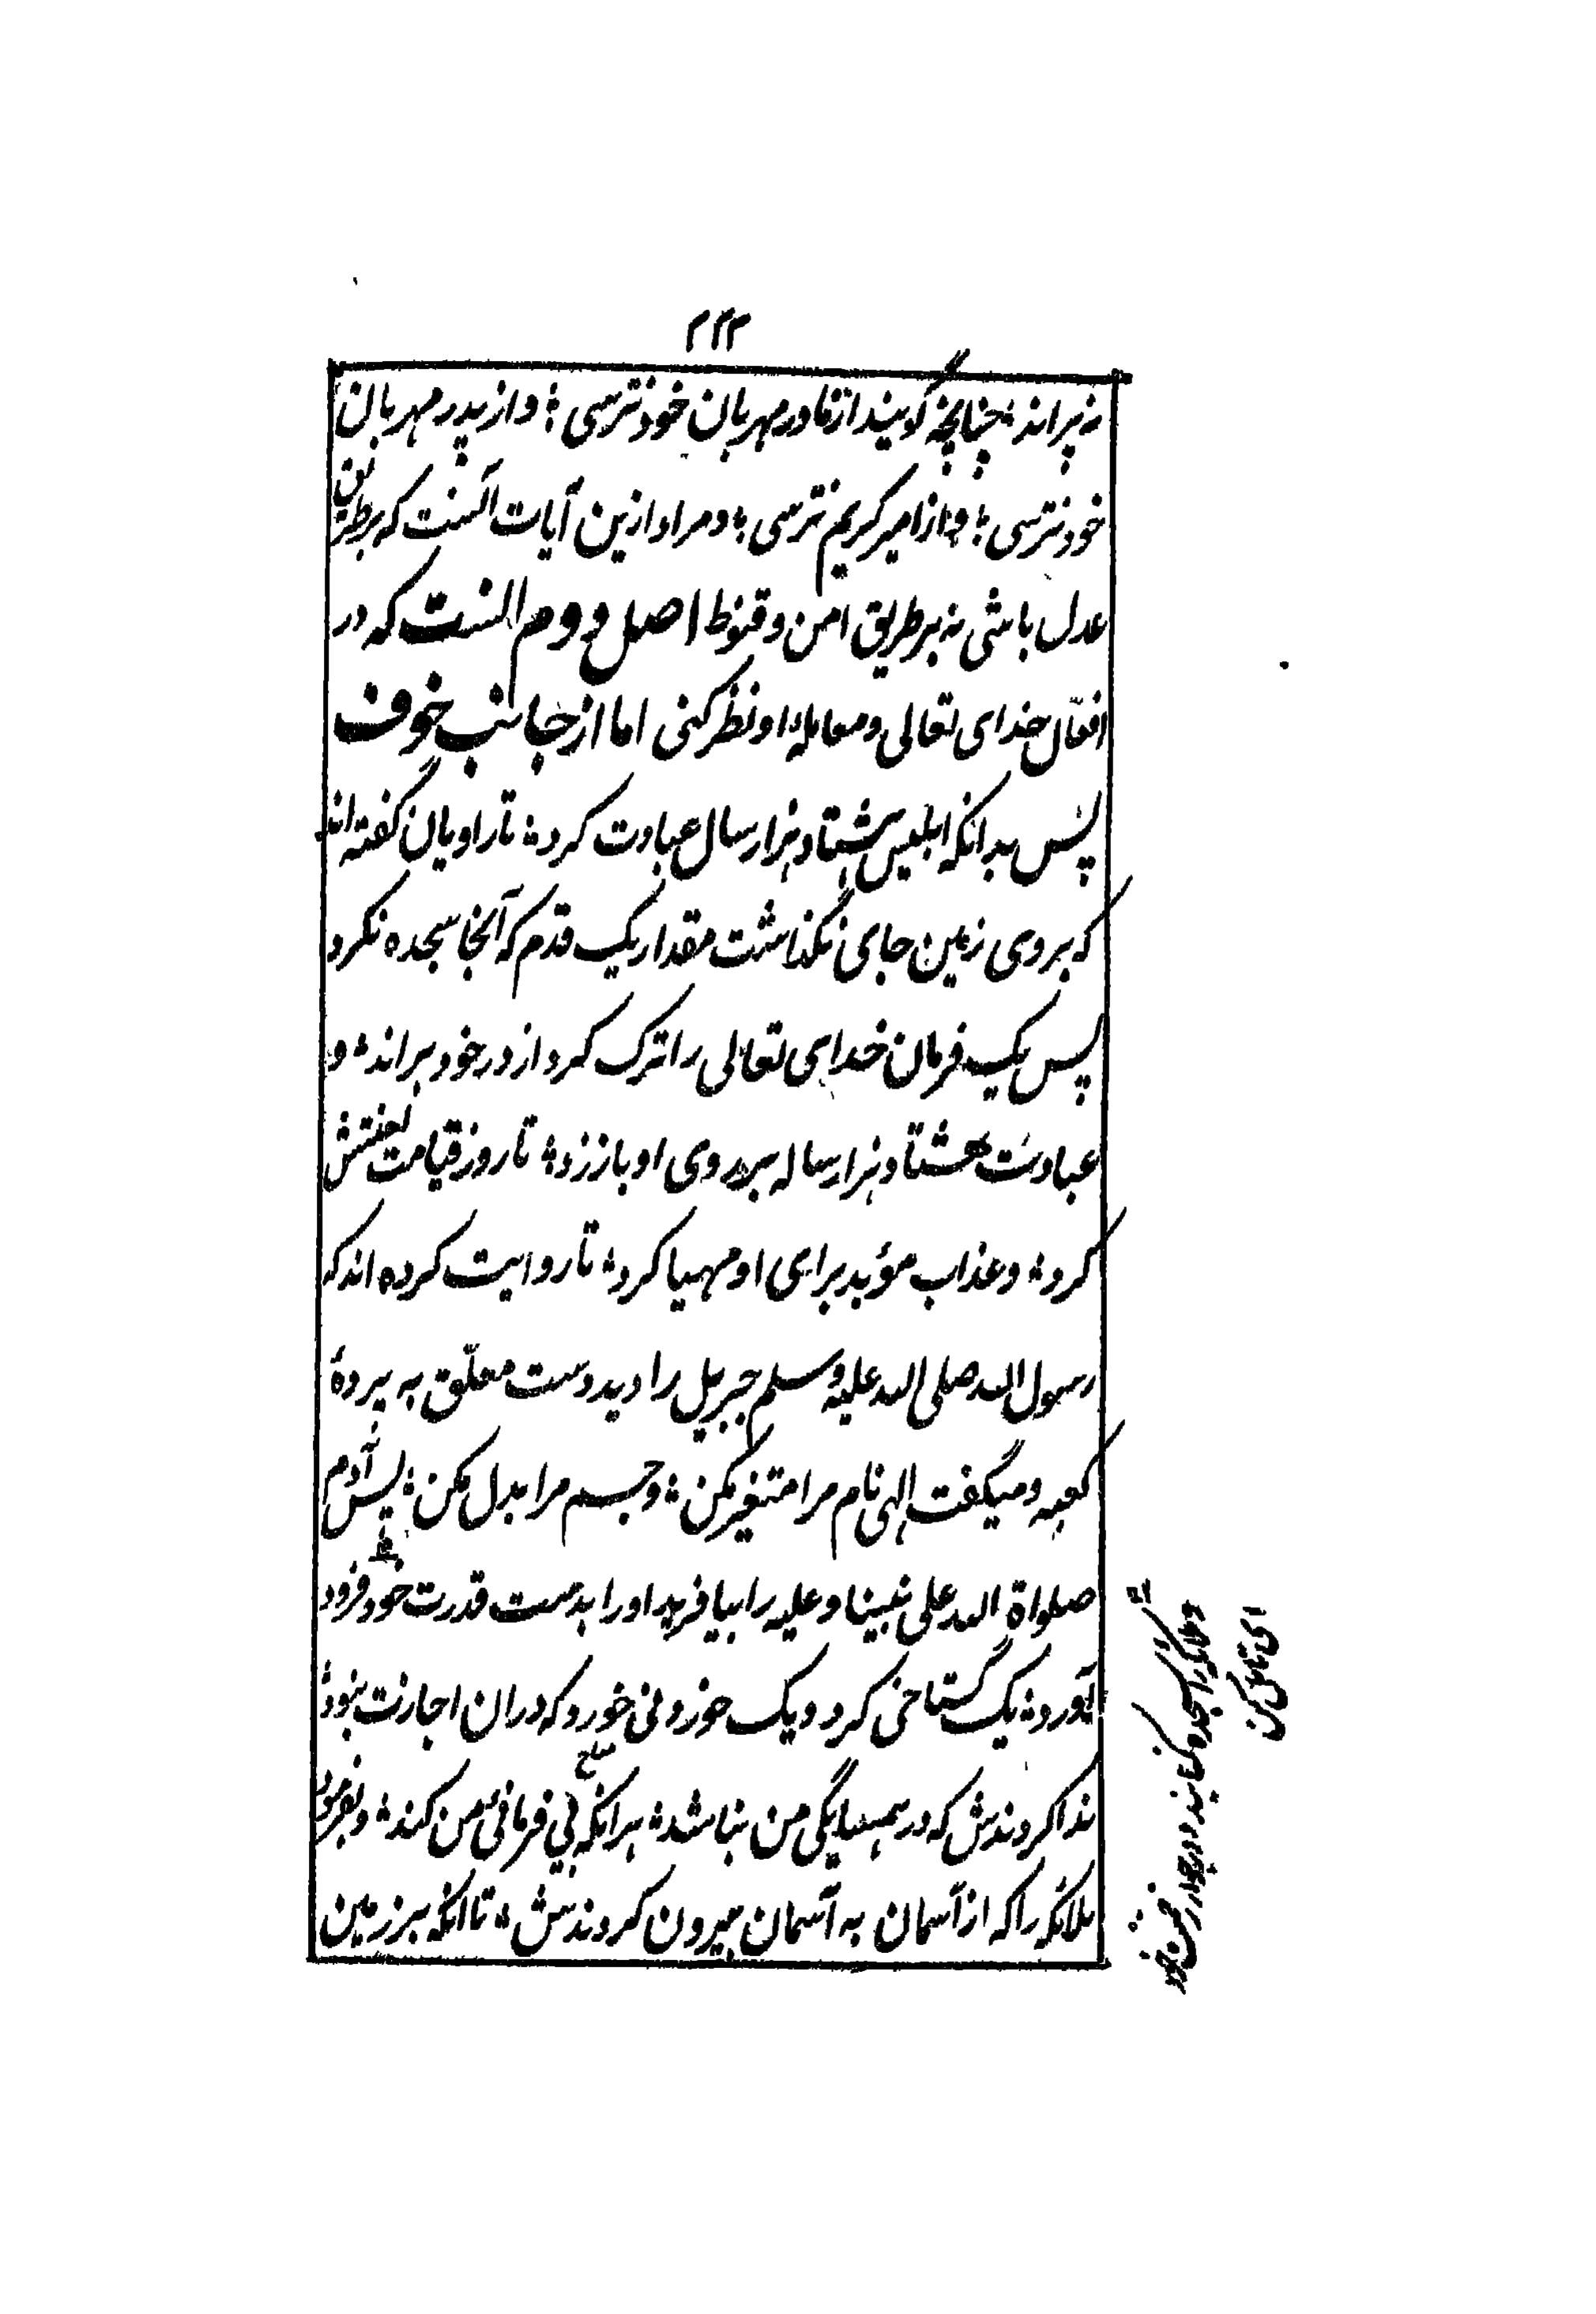 ۲۳۳
نه پراند ؛ چنانچه گویند از مادر مهربان خود نترسی ؛ و از پدر مهربان
خود نترسی ؛ و از امیر کریم نترسی ؛ و مراد ازین آیات آنست که بر طریق
عدل باشی نه بر طریق امن و قنوط اصل دوم آنست که در
افعال خدای تعالی و معامله او نظر کنی اما از جانب خوف
پس بدانکه ابلیس هشتاد هزار سال عبادت کرد ؛ تا راویان گفته اند
که بروی زمین جای نگذاشت مقدار یک قدم که آنجا سجده نکرد
پس یک فرمان خدای تعالی را ترک کرد از در خود براند ؛ و
عبادت هشتاد هزار ساله بر روی او باز زد ؛ تا روز قیامت لعنتش
کرد ؛ و عذاب مؤبد برای او مهیا کرد ؛ تا روایت کرده اند که
رسول الله صلی الله علیه وسلم جبرییل را دید دست معلّق به پردهٔ
کعبه و میگفت الهی نام مرا متغیر مکن ؛ و جسم مرا بدل مکن ؛ پس آدم
صلواة الله علی نبینا و علیه را بیافرید او را بدست قدرت خود فرود
آورد ؛ یک گستاخی کرد و یک خوردنی خورد که دران اجازت نبود ؛
ندا کردندش که در همسایگی من نباشد ؛ هرانکه بی فرمانی من کند ؛ و بفرمود
ملائکه را که از آسمان به آسمان بیرون کردندش ؛ تا آنکه بر زمین
و ملائکه را سجده کنانید و در جوار
ای تامل کن